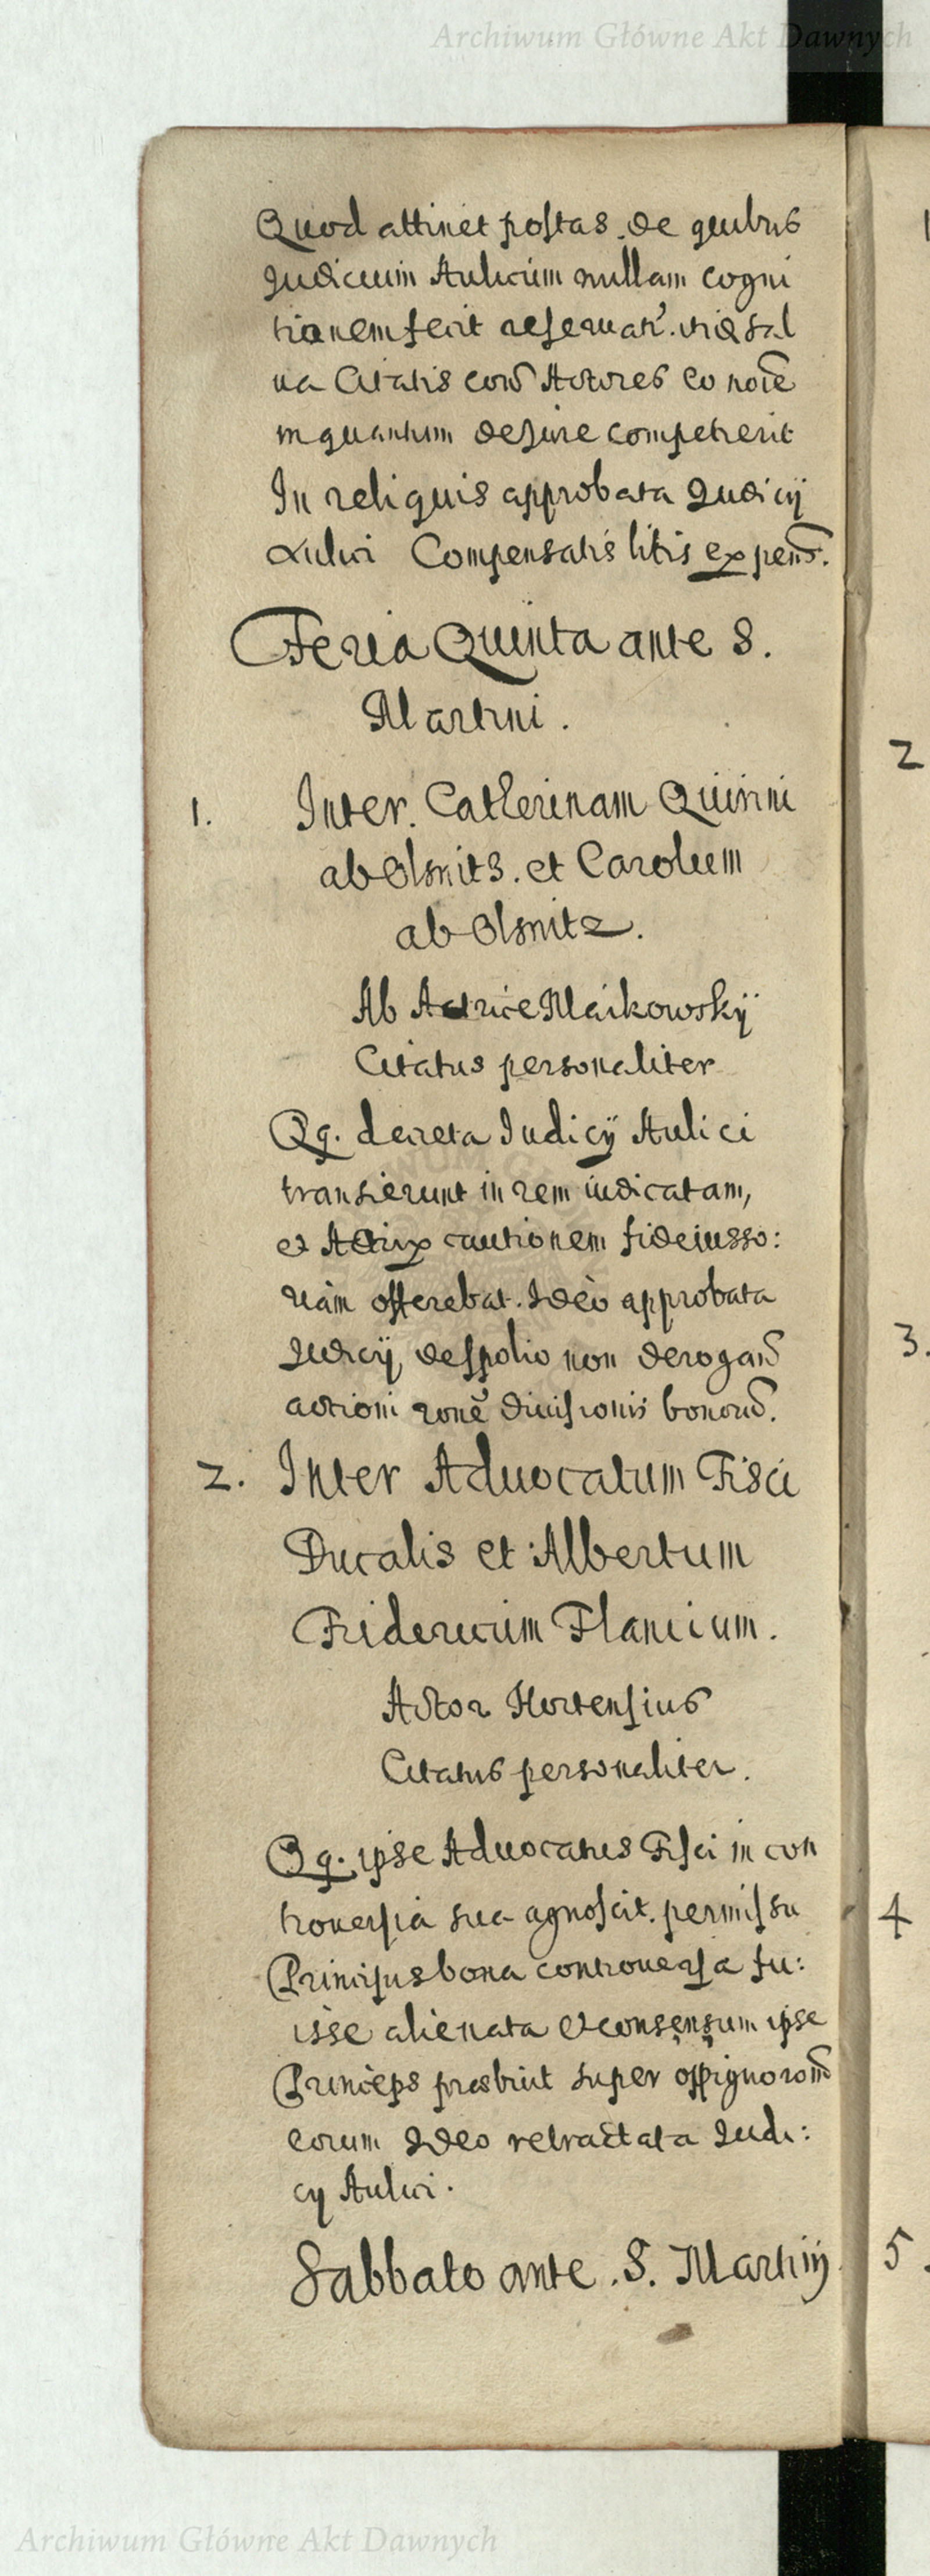 Archiwum Główne Akt Dawnych
Quod attinet postas de quibus
Judicium Aulicum nullam cogni
tionem fecit reservat.
va Citatis Actores eo noīe
in quantum de jure competierit
In reliquis approbata Judicij
Aulici Compensatis litis expens.
Feria Quinta ante S.
Martini.
1. Inter Catherinam Quirini
ab Olsnits. et Carolum
ab Olsnitz.
Ab Actrice Maikowskÿ
Citatus personaliter
Qq. decreta Iudicÿ Aulici
transierunt in rem iudicatam,
et Actrix cautionem fideiusso:
riam offerebat. Ideò approbata
Judicij, de spolio non derogand
actioni rone divisionis bonorum.
2. Inter Advocatum Fisci
Ducalis et Albertum
Fridericum Flanium.
Actor Hortensius
Citatus personaliter.
Qq. ipse Advocatus Fisci in con
troversia sua agnoscit. permissu
Principis bona controversa fu:
isse alienata et consensum ipse
Princeps praebuit super oppignoroñe
eorum Ideo retractata Judi:
cij Aulici.
Sabbato ante S. Martinij
2
3.
4
5.
Archiwum Główne Akt Dawnych